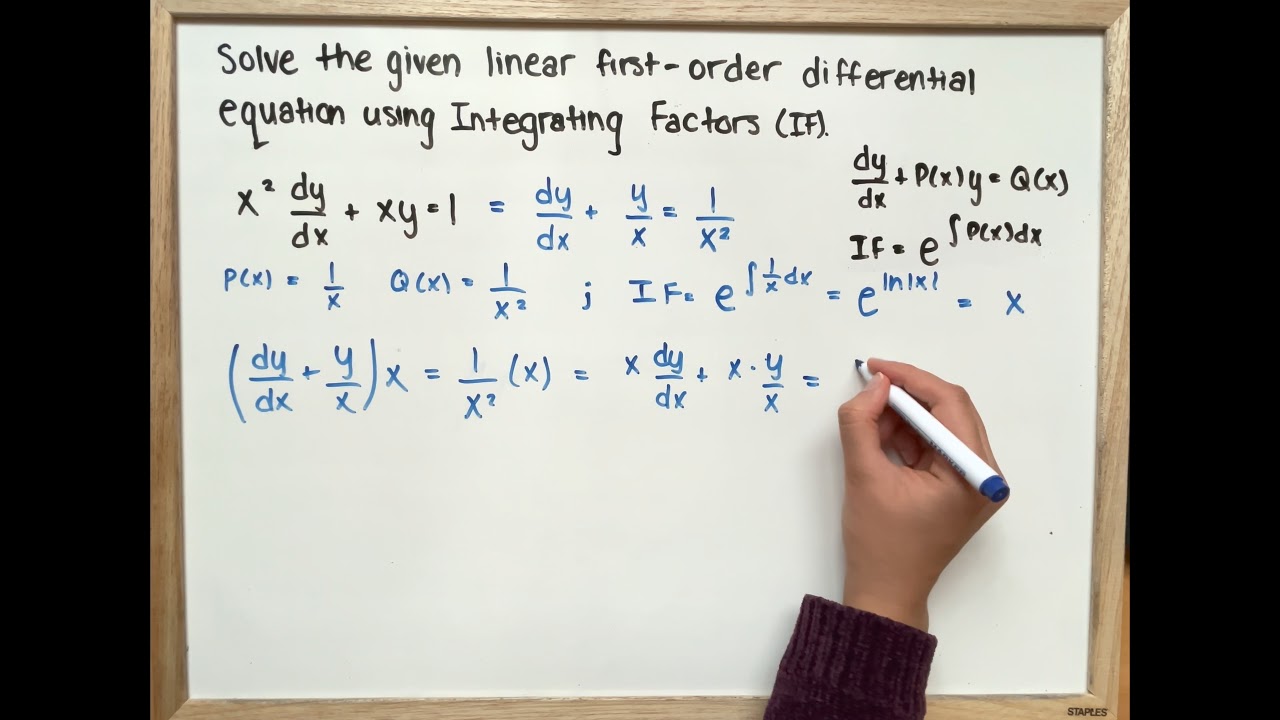 Solve the given linear first-order differential
equation using Integrating Factors (IF).
dy/dx + P(x)y = Q(x)
IF = e^∫P(x)dx
x² dy/dx + xy = 1 = dy/dx + y/x = 1/x²
P(x) = 1/x Q(x) = 1/x² ; IF = e^∫1/x dx = e^ln|x| = x
(dy/dx + y/x)x = 1/x² (x) = x dy/dx + x · y/x =
STAPLES